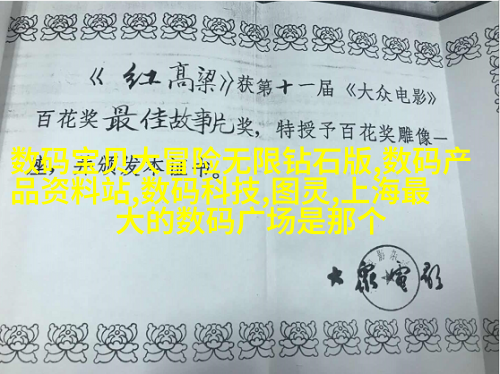 《红高粱》获第十一届《大众电影》
百花奖最佳故事片奖，特授予百花奖雕像一
座，并颁发本证书。
数码宝贝大冒险无限钻石版,数码产
品资料站,数码科技,图灵,上海最
大的数码广场是那个
大众电影